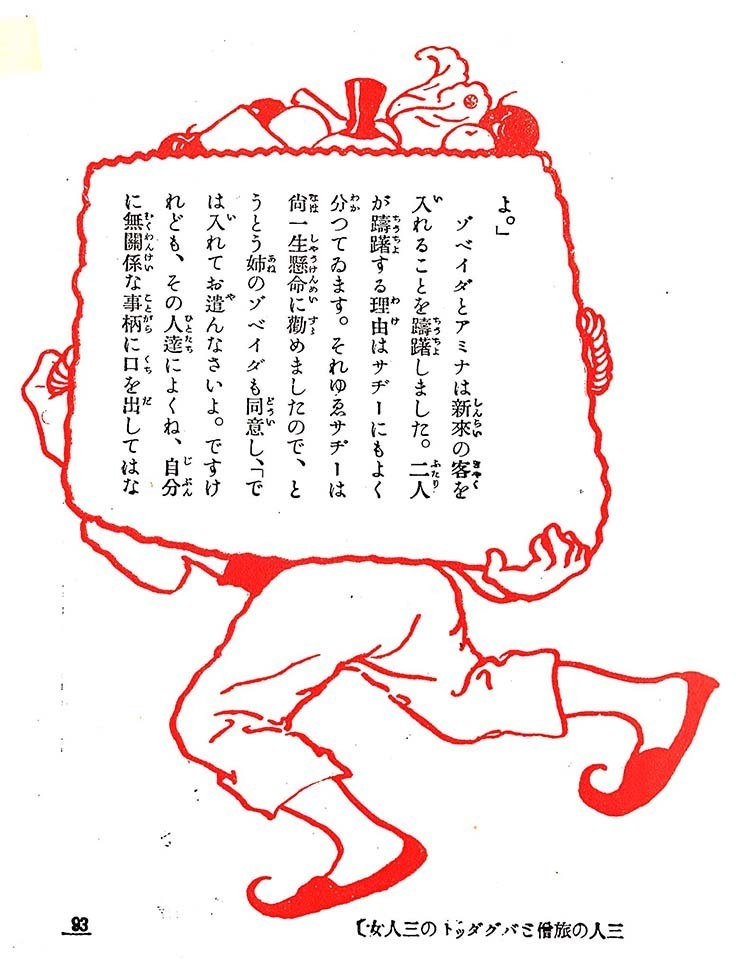 よ。」
ゾベイダとアミナは新來の客を
入れることを躊躇しました。二人
が躊躇する理由はサヂーにもよく
分つてゐます。それゆゑサヂーは
尙一生懸命に勸めましたので、と
うとう姉のゾベイダも同意し、「で
は入れてお遣んなさいよ。ですけ
れども、その人達によくね、自分
に無關係な事柄に口を出してはな
三人の旅僧とバグダットの三人女〔
93